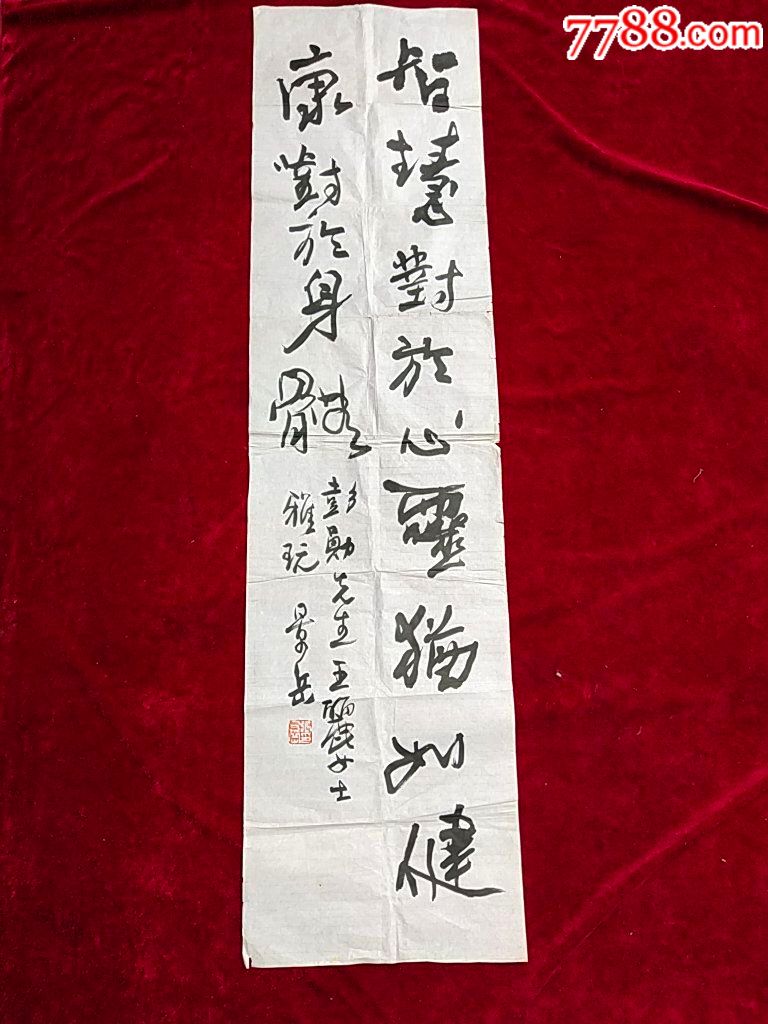 7788.com
智慧對於心靈猶如健
康對於身體
彭勛先生王驪女士
雅玩
景岳